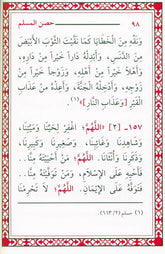 ٩٨ حصن المسلم
وَنَقِّهِ مِنَ الْخَطَايَا كَمَا نَقَّيْتَ الثَّوْبَ الأَبْيَضَ
مِنَ الدَّنَسِ، وَأَبْدِلْهُ دَارًا خَيْرًا مِنْ دَارِهِ،
وَأَهْلاً خَيْرًا مِنْ أَهْلِهِ، وَزَوْجًا خَيْرًا مِنْ
زَوْجِهِ، وَأَدْخِلْهُ الْجَنَّةَ، وَأَعِذْهُ مِنْ عَذَابِ
الْقَبْرِ [وَعَذَابِ النَّارِ]»(١).
١٥٧- [٢] «اللَّهُمَّ اغْفِرْ لِحَيِّنَا وَمَيِّتِنَا،
وَشَاهِدِنَا وَغَائِبِنَا، وَصَغِيرِنَا وَكَبِيرِنَا،
وَذَكَرِنَا وَأُنْثَانَا، اللَّهُمَّ مَنْ أَحْيَيْتَهُ مِنَّا
فَأَحْيِهِ عَلَى الإِسْلاَمِ، وَمَنْ تَوَفَّيْتَهُ مِنَّا
فَتَوَفَّهُ عَلَى الإِيمَانِ، اللَّهُمَّ لاَ تَحْرِمْنَا
(١) مسلم (٢/ ٦٦٣).